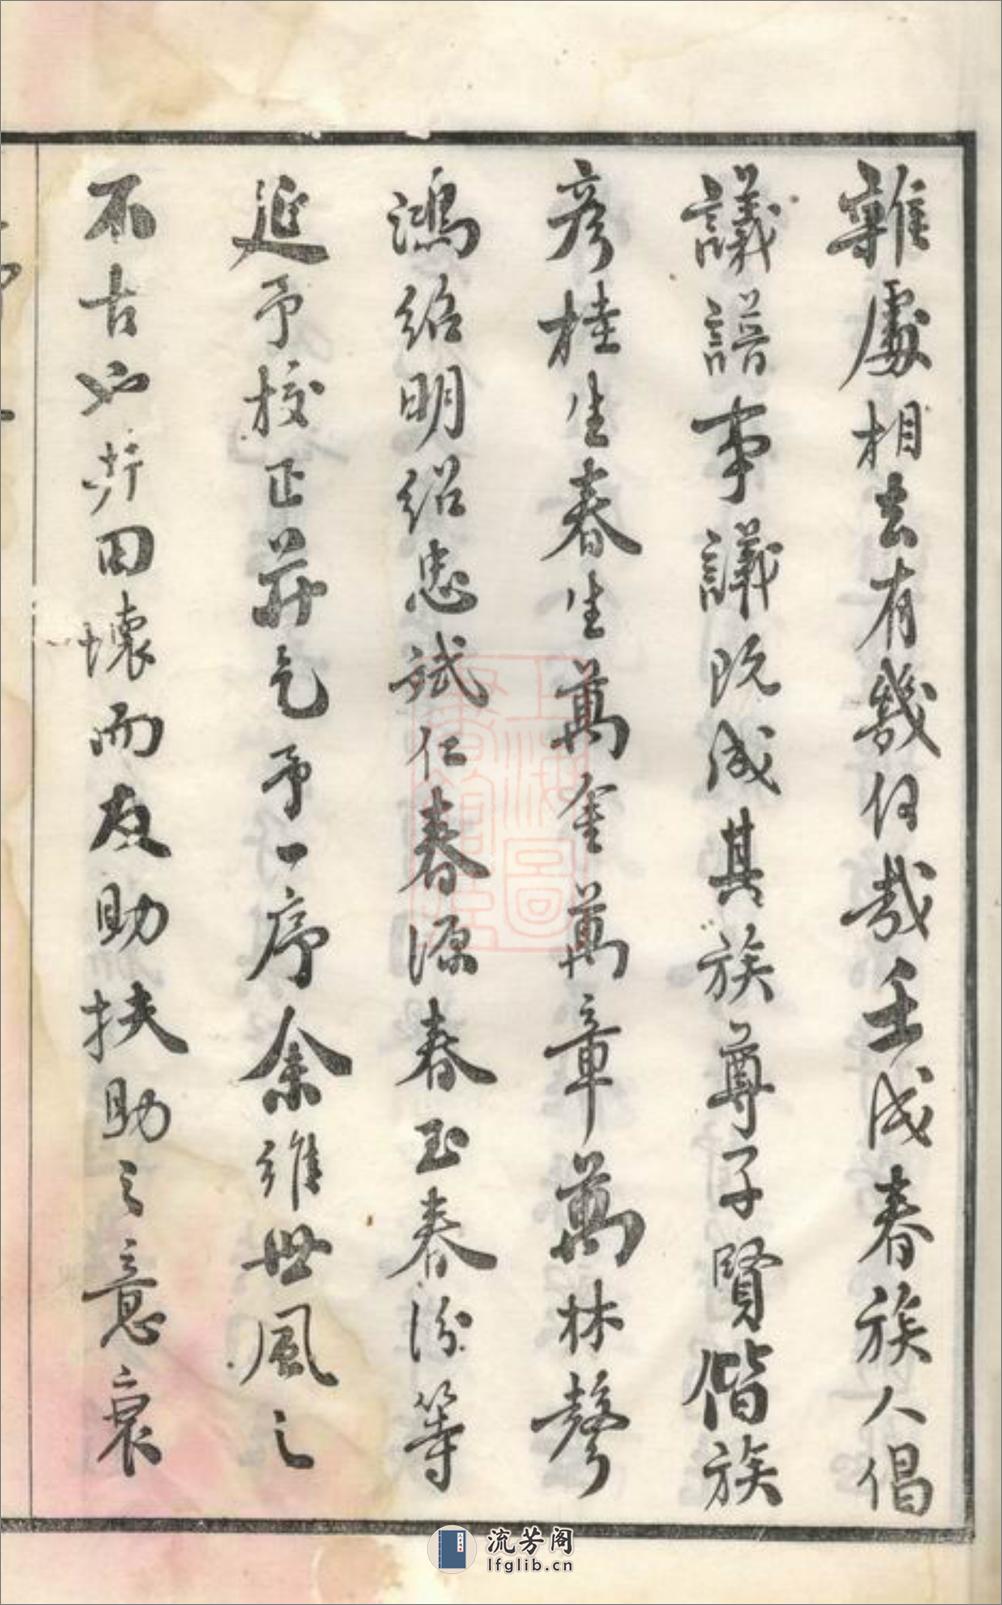 雜處相去有幾何哉壬戌春族人倡
議譜事議既成其族尊子賢偕族
彦桂生春生萬金萬章萬林聲
鴻紹明紹忠斌仁春源春玉春汾等
延予校正並乞予一序余維世風之
不古也井田壞而友助扶助之意衰
上海圖
流芳阁
lfglib.cn